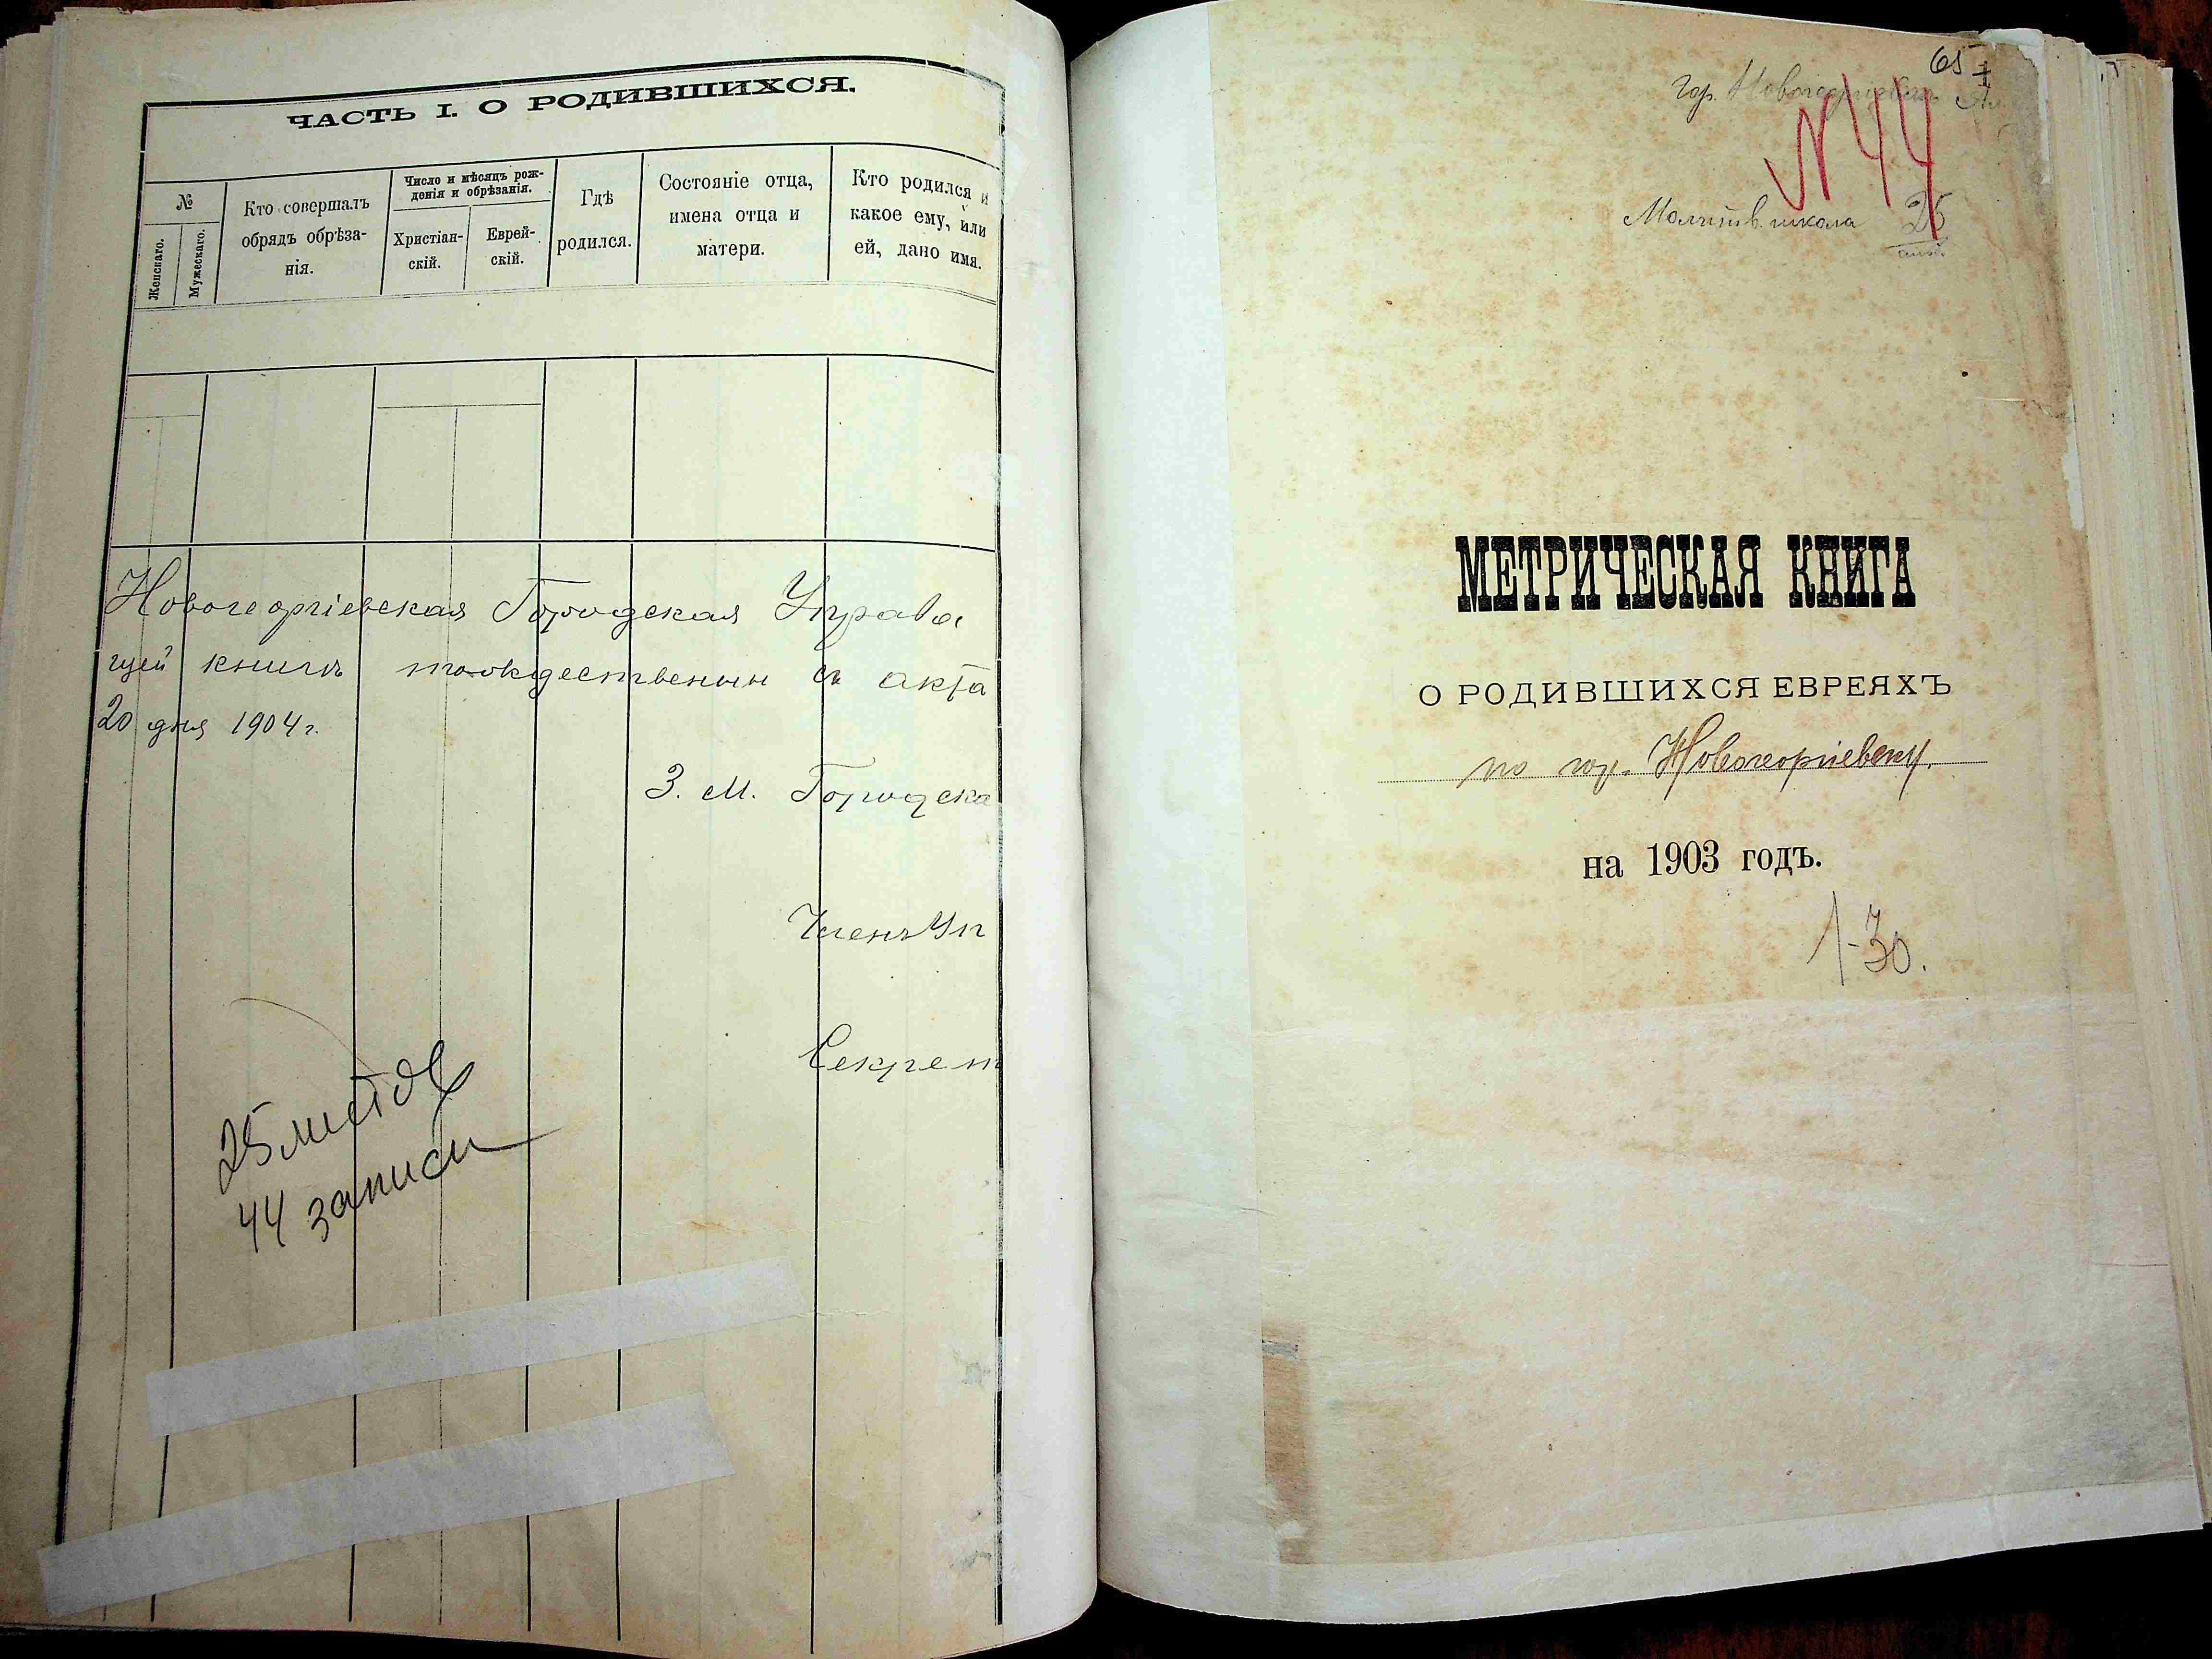 ЧАСТЬ I. О РОДИВШИХСЯ.
№
Женскаго.
Мужескаго.
Кто совершалъ
обрядъ обрѣза-
нія.
Число и мѣсяцъ рож-
денія и обрѣзанія.
Христіан-
скій.
Еврей-
скій.
Гдѣ
родился.
Состояніе отца,
имена отца и
матери.
Кто родился и
какое ему, или
ей, дано имя.
Новогеоргіевская Городская Управа
щей книгѣ тождественны съ акта
20 дня 1904 г.
З. М. Городска
Членъ Уп
Секрет
25 листов
44 записи
65
гор. Новогеоргиевск
N 44
Молитв. школа 25
МЕТРИЧЕСКАЯ КНИГА
О РОДИВШИХСЯ ЕВРЕЯХЪ
по гор. Новогеоргіевску.
на 1903 годъ.
1-30.